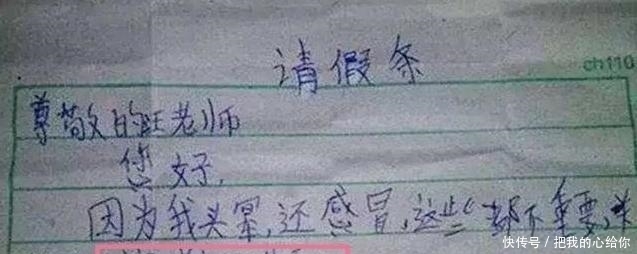 请假条
ch110
尊敬的旺老师
您好,
因为我头晕,还感冒,这些都不重要,关
快传号 / 把我的心给你